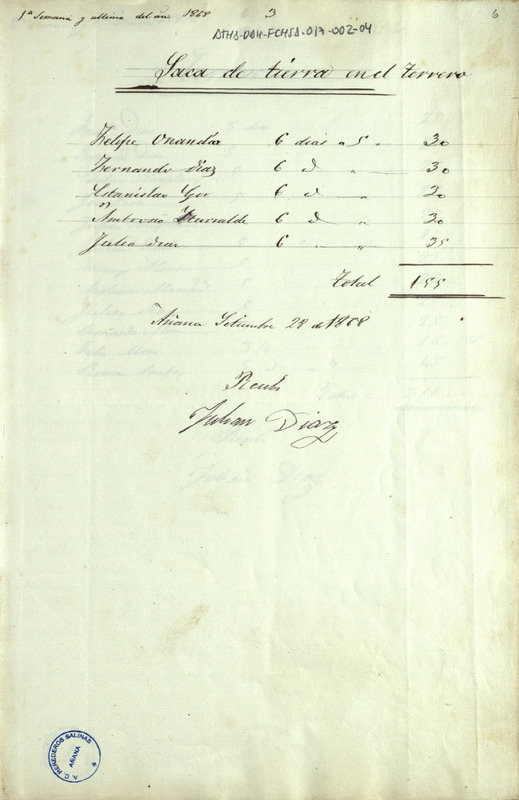 1ª Semana y ultima del año 1868 3 6
ATHA-DAH-FCHSA-017-002-04
Saca de tierra en el terrero
Felipe Onandia 6 dias a 5 " 30
Fernando Diaz 6 d " 30
Estanislao Gor 6 d " 30
Ambrosio Iturralde 6 d " 30
Julian Diaz 6 " " 35
Total 155
Añana Setiembre 28 de 1868
Recibi
Julian Diaz
A. C. HEREDEROS SALINAS
AÑANA